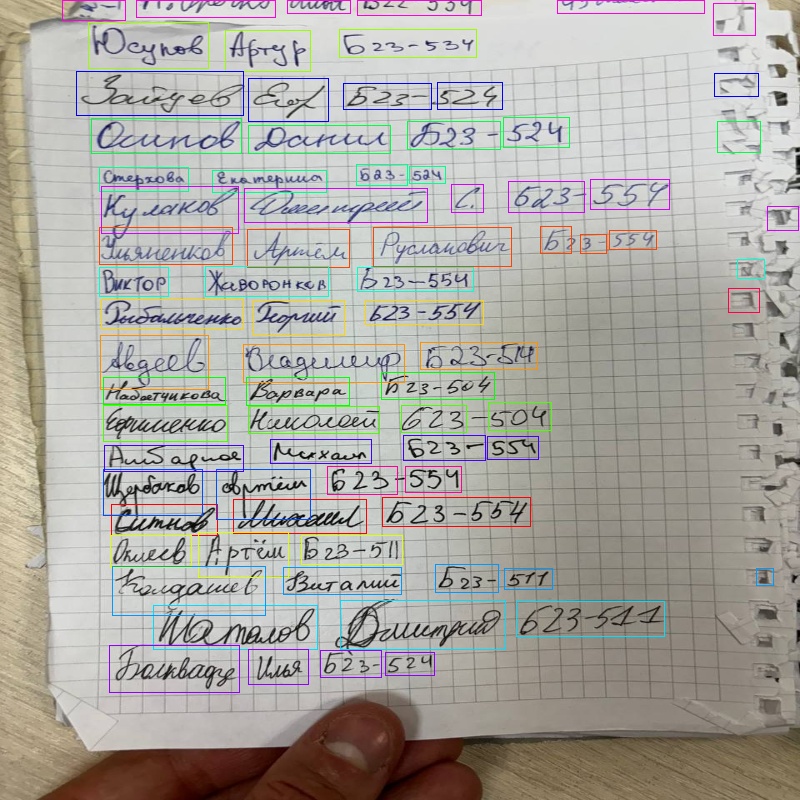 Юсупов Артур Б23-534
Зайцев Егор Б23-524
Осипов Данил Б23-524
Стерхова Екатерина Б23-524
Куланов Дмитрий С. Б23-554
Ульяненков Артём Русланович Б23-554
Виктор Жаворонков Б23-554
Рыбальченко Георгий Б23-554
Авдеев Владимир Б23-514
Набатчикова Варвара Б23-504
Ефименко Николай Б23-504
Амбарное Михаил Б23-554
Щербаков Артём Б23-554
Ситнов Михаил Б23-554
Артём Б23-511
Колдашев Виталий Б23-511
Шаталов Дмитрий Б23-511
Болквадзе Илья Б23-524